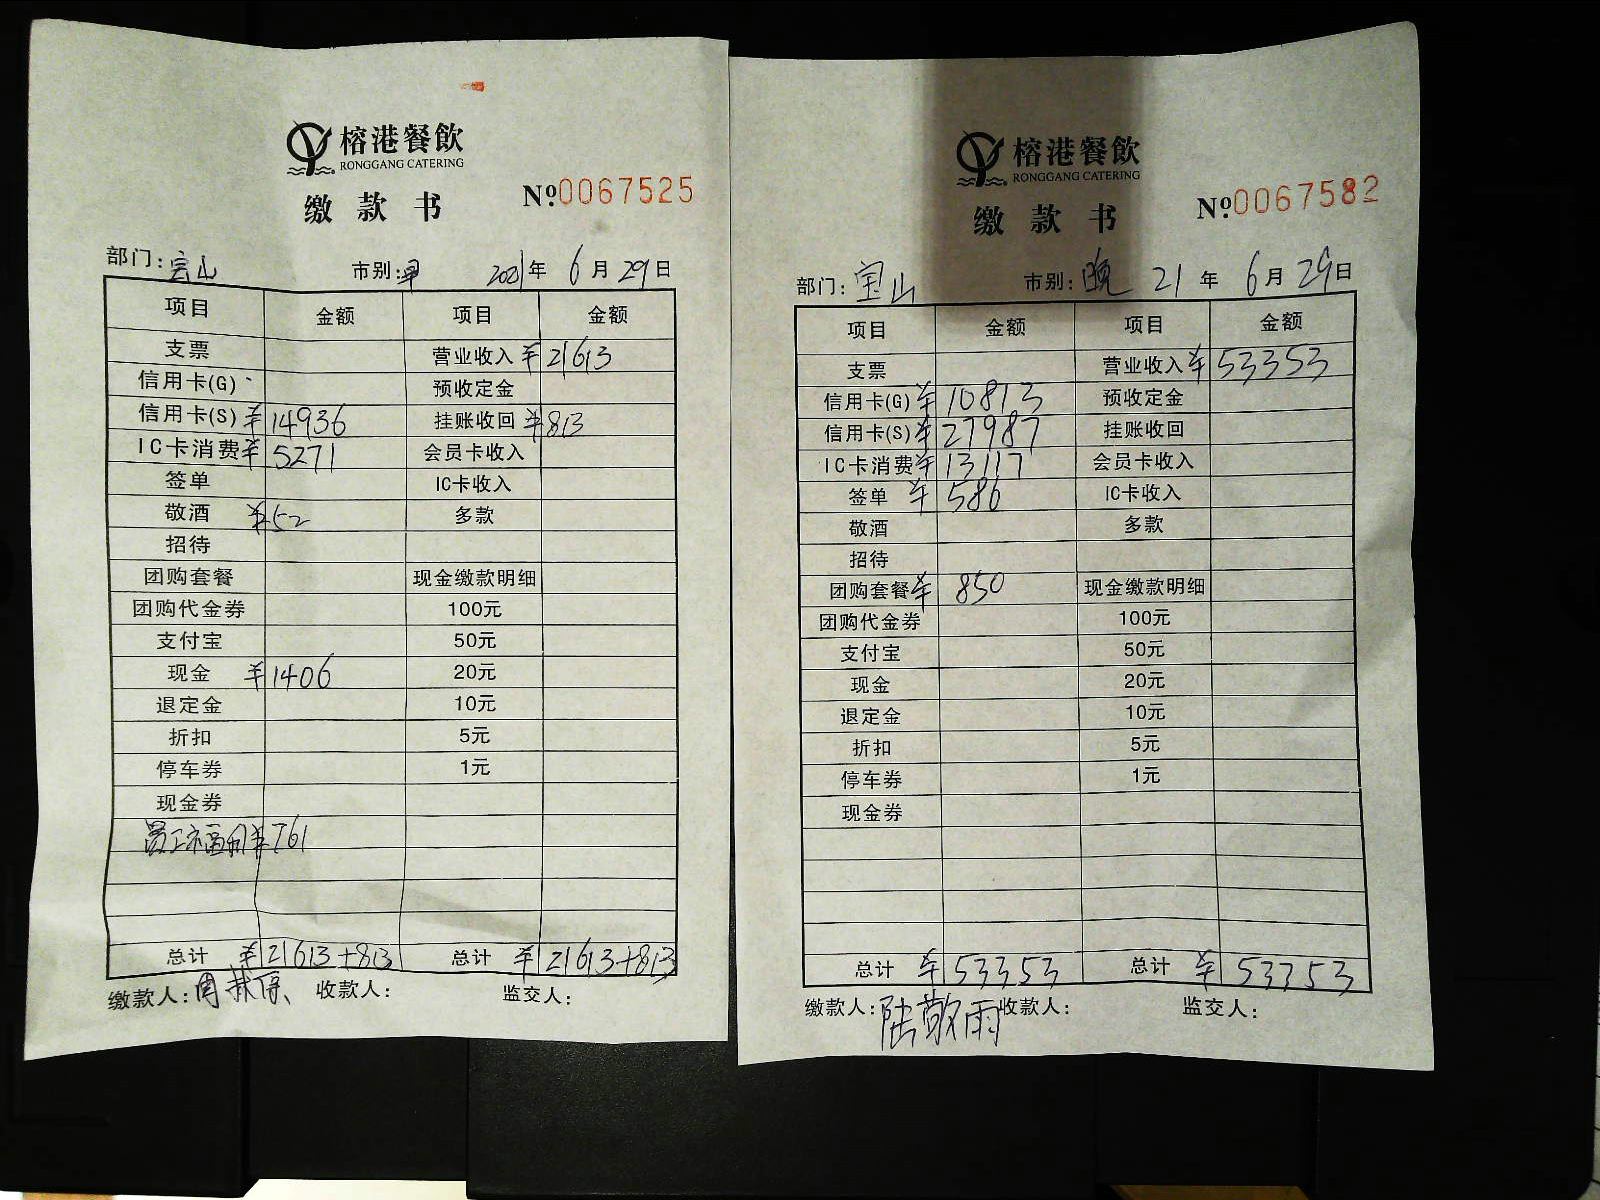 榕港餐飲
RONGGANG CATERING
缴款书
No.0067525
部门:宝山 市别:早 2021年6月29日
项目 金额 项目 金额
支票 营业收入 ¥21613
信用卡(G) 预收定金
信用卡(S) ¥14936 挂账收回 ¥813
IC卡消费 ¥5271 会员卡收入
签单 IC卡收入
敬酒 ¥52 多款
招待
团购套餐 现金缴款明细
团购代金券 100元
支付宝 50元
现金 ¥1406 20元
退定金 10元
折扣 5元
停车券 1元
现金券
员工福利 ¥761
总计 ¥21613+813 总计 ¥21613+813
缴款人: 收款人: 监交人:
榕港餐飲
RONGGANG CATERING
缴款书
No.0067582
部门:宝山 市别:晚 21年6月29日
项目 金额 项目 金额
支票 营业收入 ¥53353
信用卡(G) ¥10813 预收定金
信用卡(S) ¥27987 挂账收回
IC卡消费 ¥13117 会员卡收入
签单 ¥586 IC卡收入
敬酒 多款
招待
团购套餐 ¥850 现金缴款明细
团购代金券 100元
支付宝 50元
现金 20元
退定金 10元
折扣 5元
停车券 1元
现金券
总计 ¥53353 总计 ¥53353
缴款人:陆敬雨 收款人: 监交人: